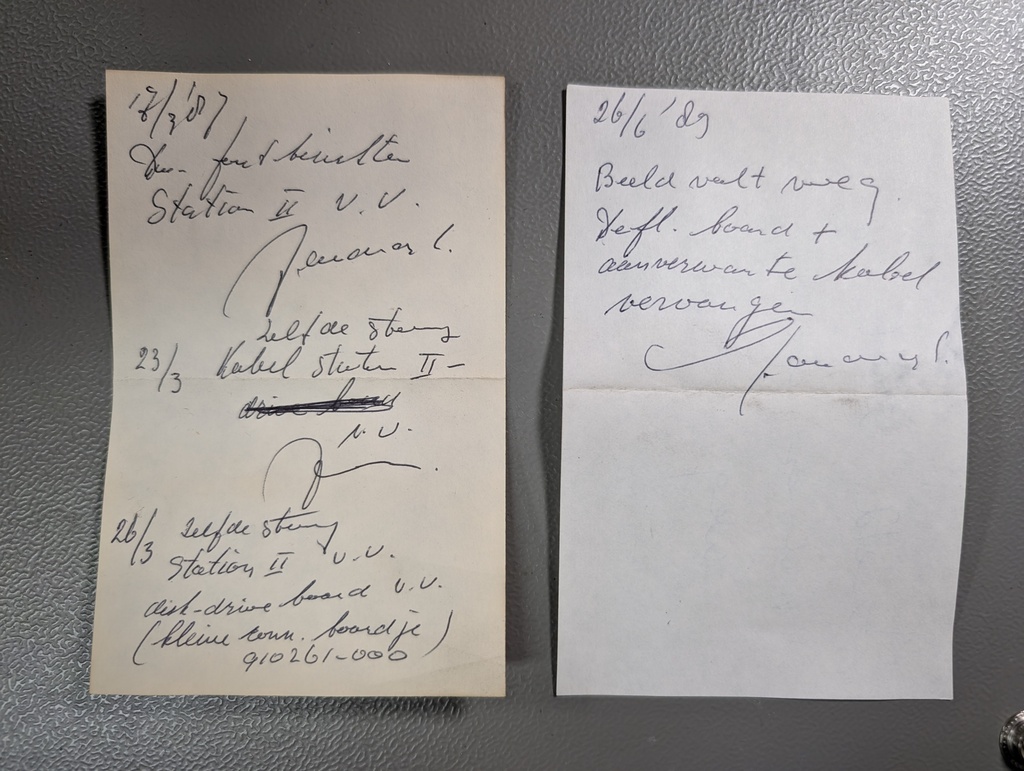 17/3 '87
Div. foutberichten
Station II v.v.
23/3
Zelfde storing
Kabel Station II -
v.v.
26/3 zelfde storing
Station II v.v.
disk-drive board v.v.
(kleine conn. boardje)
910261-000
26/6 '89
Beeld valt weg
Defl. board +
aanverwante kabel
vervangen